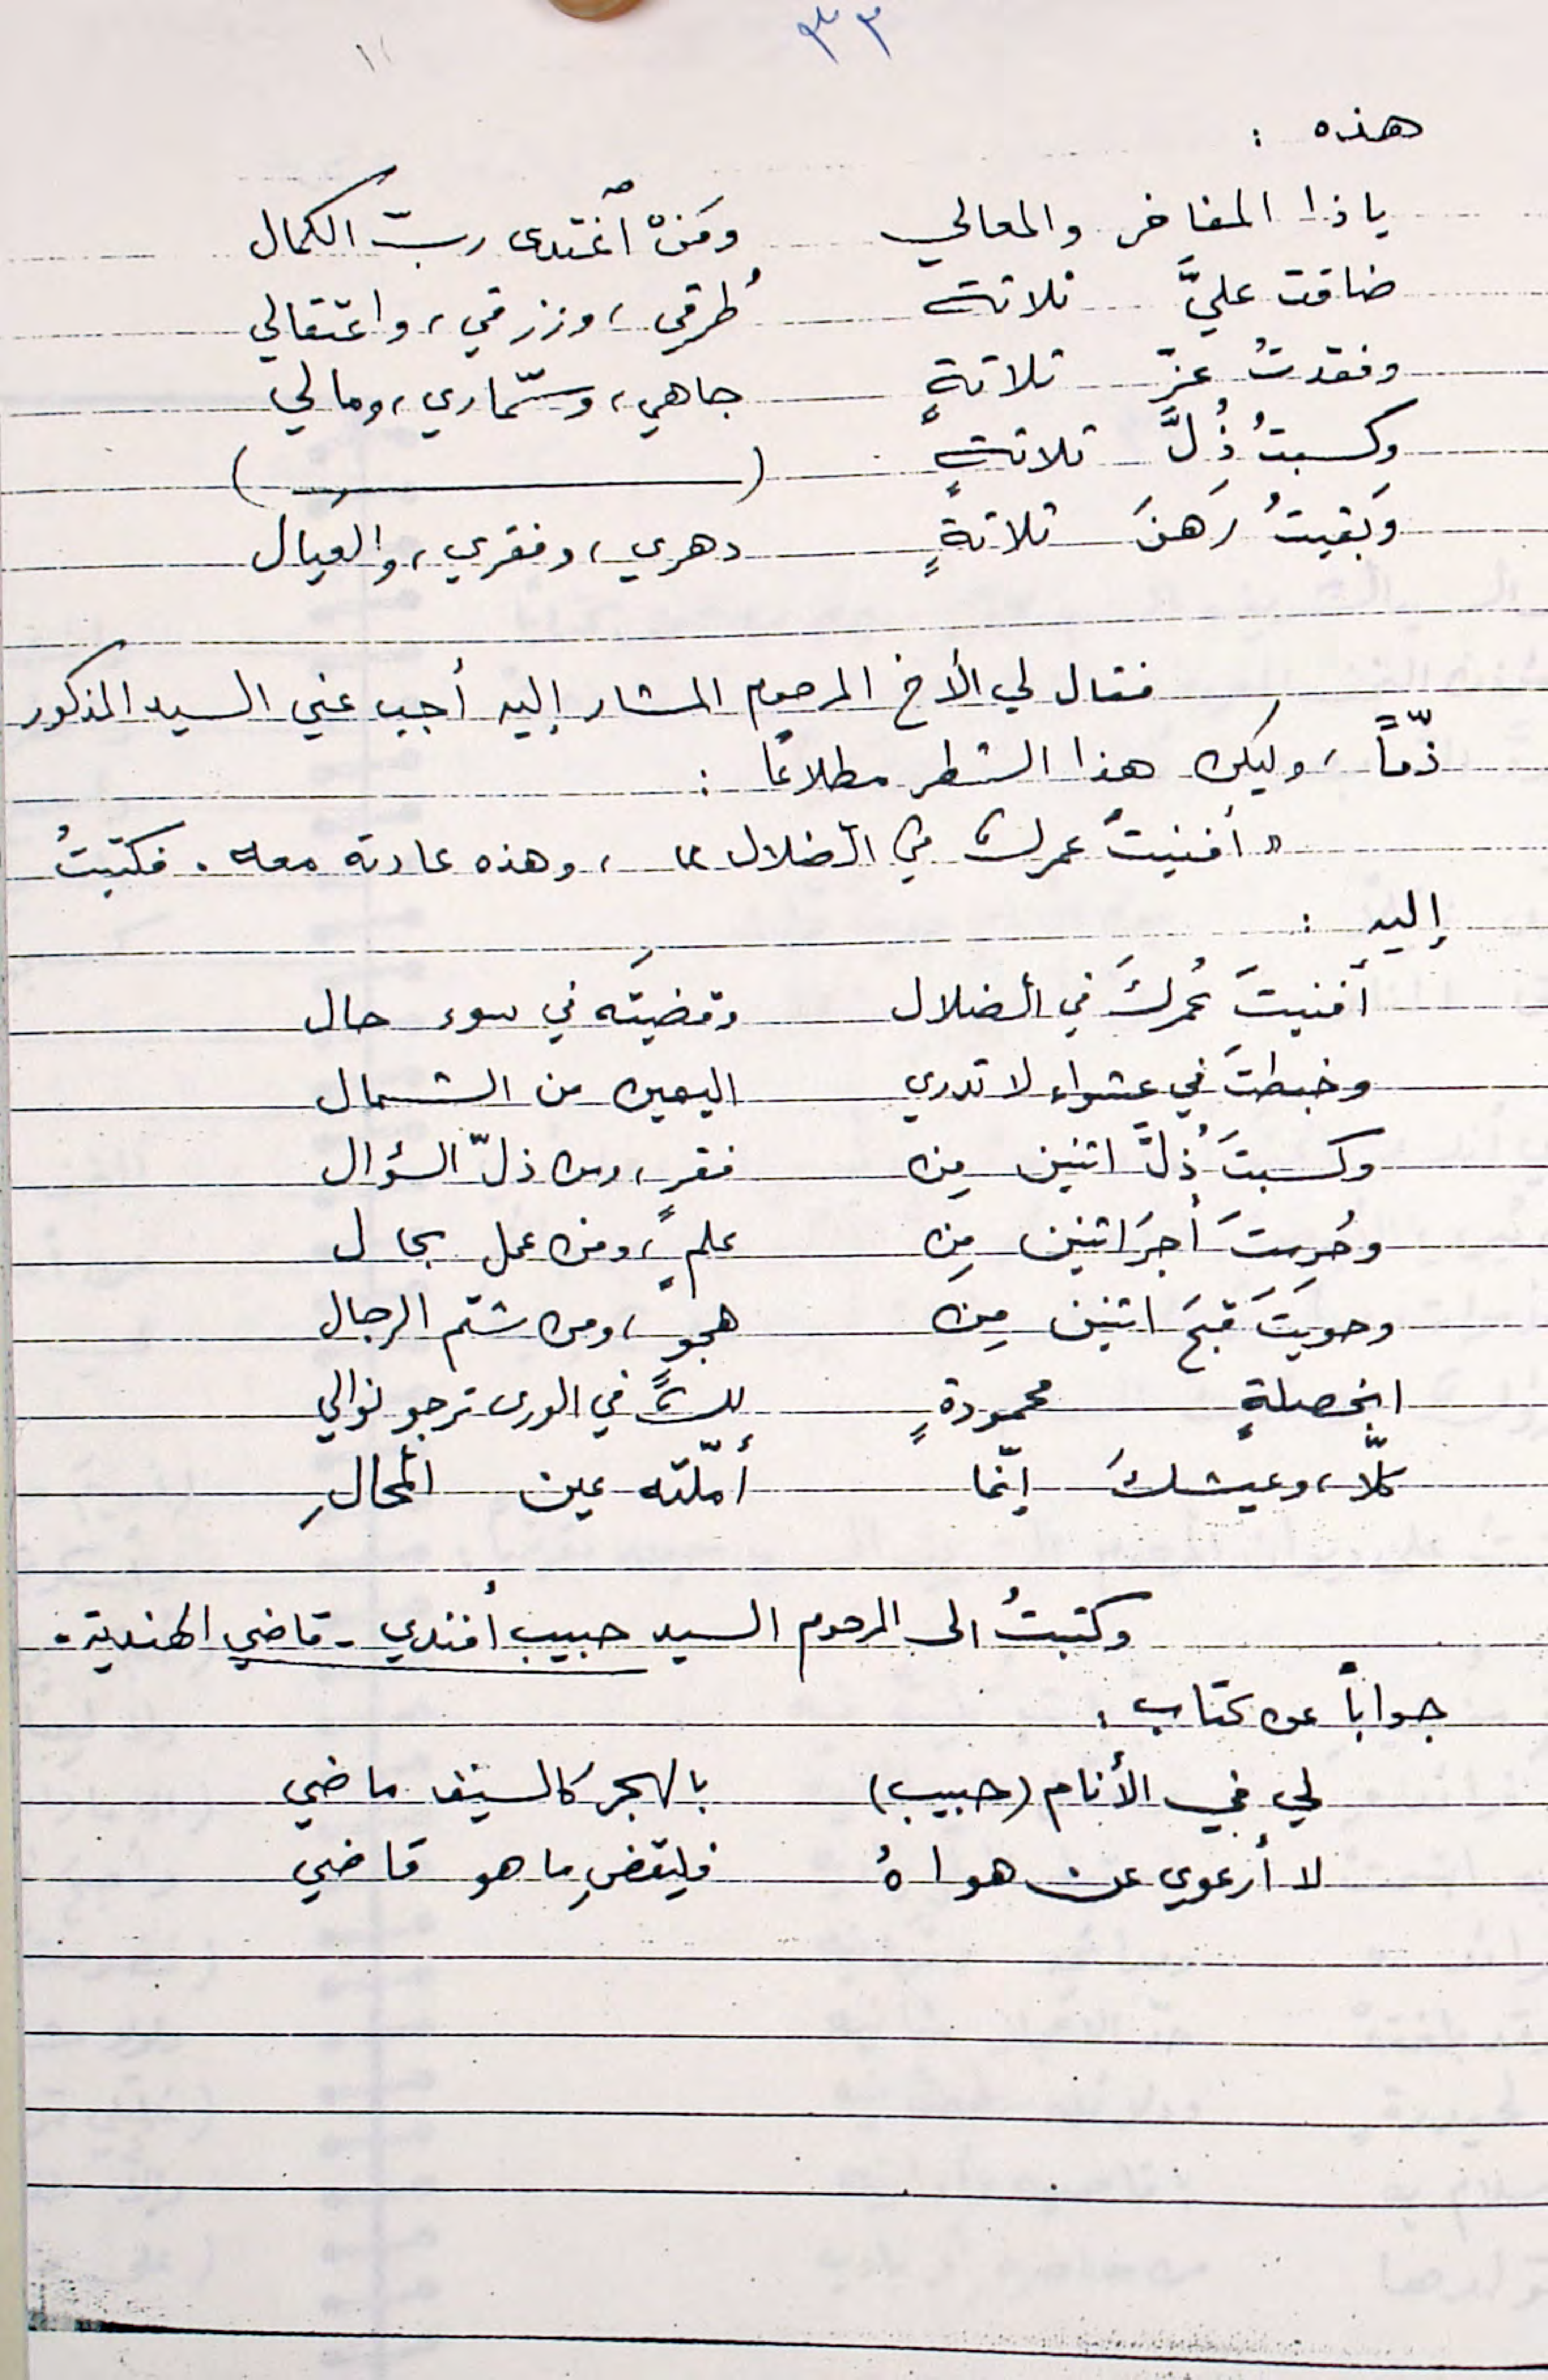 ٣٣
هذه :
يا ذا المفاخر والمعالي ومَنْ اغتدى ربّ الكمال
ضاقت عليَّ ثلاثة طُرقي، ورزقي، واعتقالي
وفقدتُ عِزّ ثلاثةٍ جاهي، وسمّاري، ومالي
وكسبتُ ذُلَّ ثلاثةٍ ( )
وبقيتُ رَهنَ ثلاثةٍ دهري، وفقري، والعيال
فقال لي الأخ المرحوم المشار إليه أجب عني السيد المذكور
ذمّاً، وليكن هذا الشطر مطلاعاً :
« أفنيتَ عمرك في الضلال »، وهذه عادته معه . فكتبتُ
إليه :
أفنيتَ عُمركَ في الضلال وقضيتَه في سوء حال
وخبطتَ في عشواء لا تدري اليمين من الشمال
وكسبتَ ذُلَّ اثنين مِن فقرٍ، ومن ذلّ السؤال
وحُرِمتَ أجرَ اثنين مِن علمٍ، ومن عمل بحال
وحويتَ قبحَ اثنين مِن هجوٍ، ومن شتم الرجال
ابخصلةٍ محمودةٍ لك في الورى ترجو نوالي
كلّا، وعيشك إنّما أمّلته عين المحالِ
وكتبتُ الى المرحوم السيد حبيب أفندي - قاضي الهندية -
جواباً عن كتاب :
لي في الأنام (حبيب) بالهجر كالسيف ماضي
لا أرعوي عن هواهُ فليقضِ ما هو قاضي